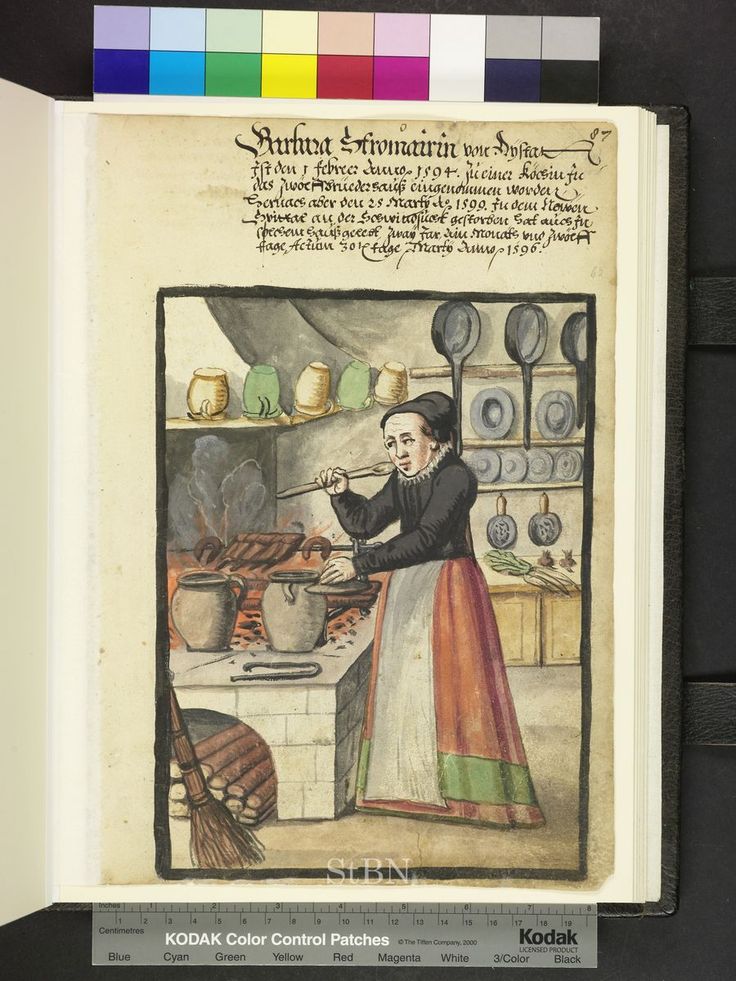 87
Barbara Stromairin von Aystat
Ist den 1 febreer Anno 1594. Zu einer Köchin in
das Zwoelffbrüederhauß eingenommen worden
hernach aber den 25 Marty Ao 1599. In dem Newen
Spittal an der Schwindsucht gestorben hat auch In
solchem hauß gelebt Zway Jar, ain Monats vnd Zwoelff
tage, Actum tage Marty Anno 1596.
62
StBN
Inches 1 2 3 4 5 6 7 8
Centimetres 1 2 3 4 5 6 7 8 9 10 11 12 13 14 15 16 17 18 19
KODAK Color Control Patches © The Tiffen Company, 2000 Kodak
LICENSED PRODUCT
Blue Cyan Green Yellow Red Magenta White 3/Color Black